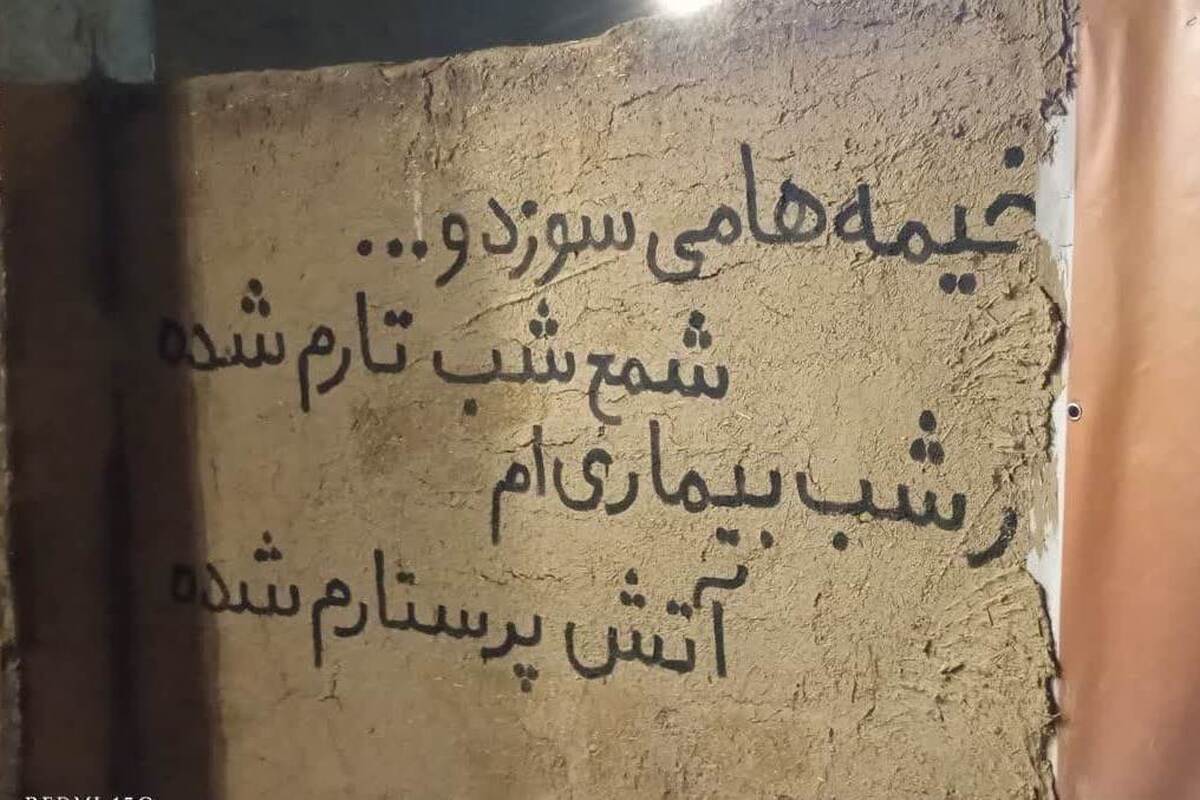 خیمه ها می سوزد و...
شمع شب تارم شده
ر شب بیماری ام
آتش پرستارم شده